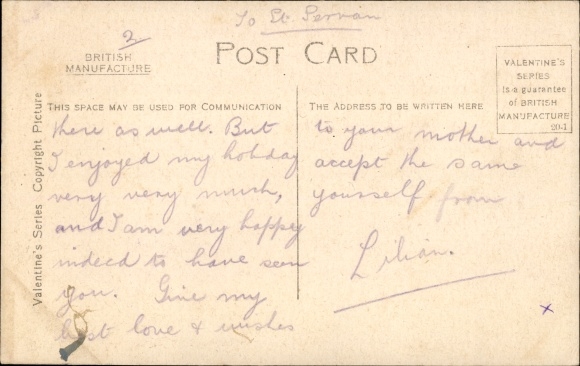 To St. Servan
2
BRITISH
MANUFACTURE
POST CARD
VALENTINE'S
SERIES
is a guarantee
of BRITISH
MANUFACTURE
20-1
Valentine's Series Copyright Picture
THIS SPACE MAY BE USED FOR COMMUNICATION
there as well. But
I enjoyed my holiday
very very much,
and I am very happy
indeed to have seen
you. Give my
best love & wishes
THE ADDRESS TO BE WRITTEN HERE
to your mother and
accept the same
yourself from
Lilian.
x